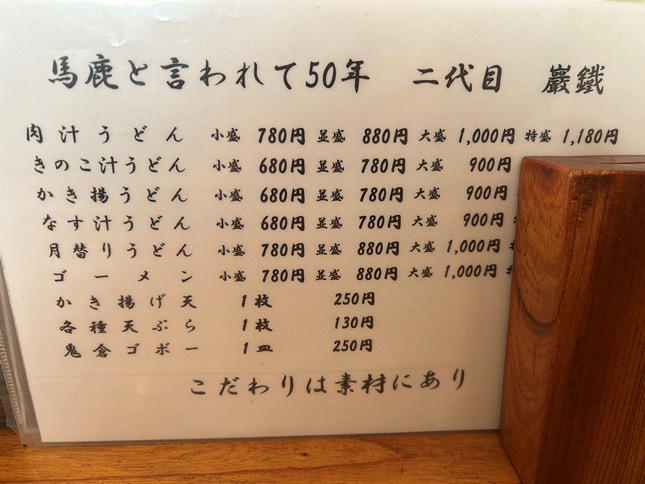 馬鹿と言われて50年 二代目 巖鐵
肉汁うどん 小盛 780円 並盛 880円 大盛 1,000円 特盛 1,180円
きのこ汁うどん 小盛 680円 並盛 780円 大盛 900円
かき揚うどん 小盛 680円 並盛 780円 大盛 900円
なす汁うどん 小盛 680円 並盛 780円 大盛 900円
月替りうどん 小盛 780円 並盛 880円 大盛 1,000円
ゴーメン 小盛 780円 並盛 880円 大盛 1,000円
かき揚げ天 1枚 250円
各種天ぷら 1枚 130円
鬼倉ゴボー 1皿 250円
こだわりは素材にあり